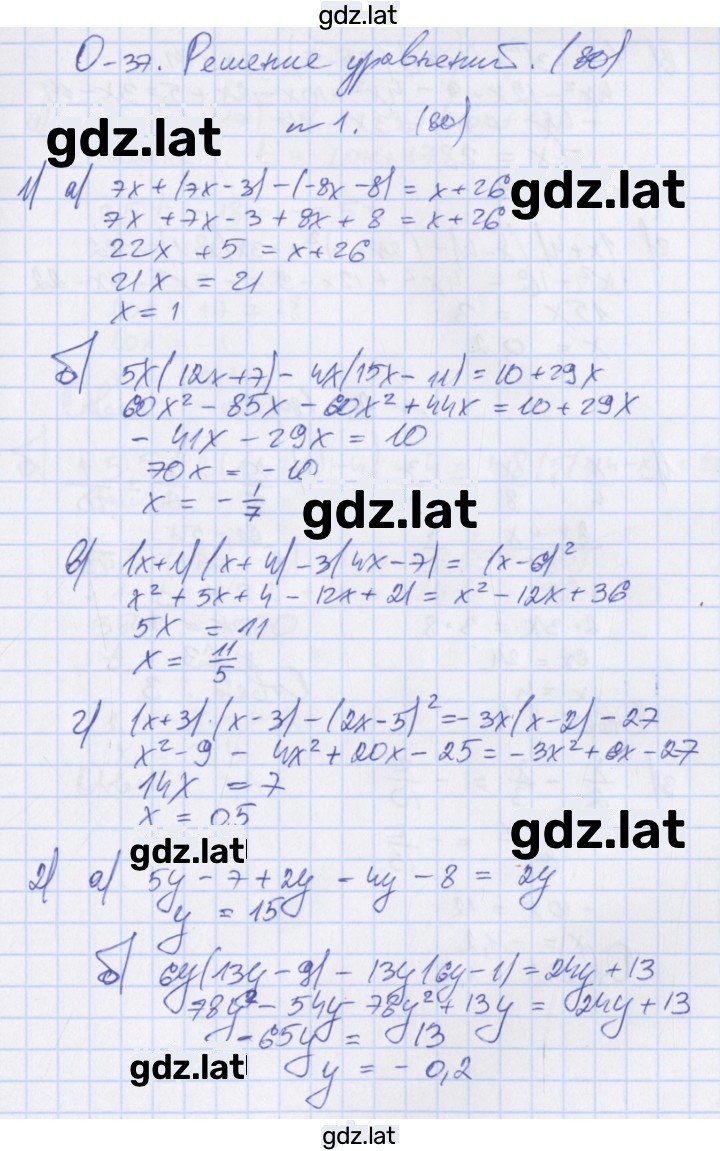 gdz.lat
О-37. Решение уравнений. (80)
gdz.lat
п 1. (80)
gdz.lat
1) а) 7x + (7x - 3) - (-8x - 8) = x + 26
7x + 7x - 3 + 8x + 8 = x + 26
22x + 5 = x + 26
21x = 21
x = 1
б) 5x(12x + 7) - 4x(15x - 11) = 10 + 29x
60x² - 85x - 60x² + 44x = 10 + 29x
- 41x - 29x = 10
70x = - 10
x = - 1/7
gdz.lat
в) (x + 1) (x + 4) - 3(4x - 7) = (x - 6)²
x² + 5x + 4 - 12x + 21 = x² - 12x + 36
5x = 11
x = 11/5
г) (x + 3) · (x - 3) - (2x - 5)² = - 3x(x - 2) - 27
x² - 9 - 4x² + 20x - 25 = - 3x² + 6x - 27
14x = 7
x = 0,5
gdz.lat
gdz.lat
2) а) 5y - 7 + 2y - 4y - 8 = 2y
y = 15
б) 6y(13y - 9) - 13y(6y - 1) = 24y + 13
78y² - 54y - 78y² + 13y = 24y + 13
- 65y = 13
gdz.lat
y = - 0,2
gdz.lat